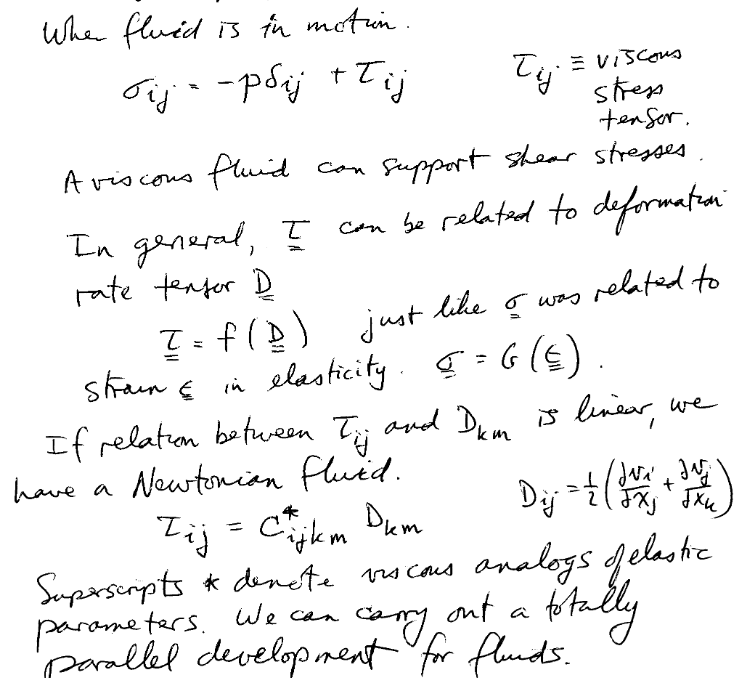 When fluid is in motion.
σij = -pδij + τij τij ≡ viscous
stress
tensor.
A viscous fluid can support shear stresses.
In general, τ can be related to deformation
rate tensor D
τ = f(D) just like σ was related to
strain ε in elasticity. σ = G(ε).
If relation between τij and Dkm is linear, we
have a Newtonian fluid.
Dij = 1/2 (∂vi/∂xj + ∂vj/∂xk)
τij = C*ijkm Dkm
Superscripts * denote viscous analogs of elastic
parameters. We can carry out a totally
parallel development for fluids.